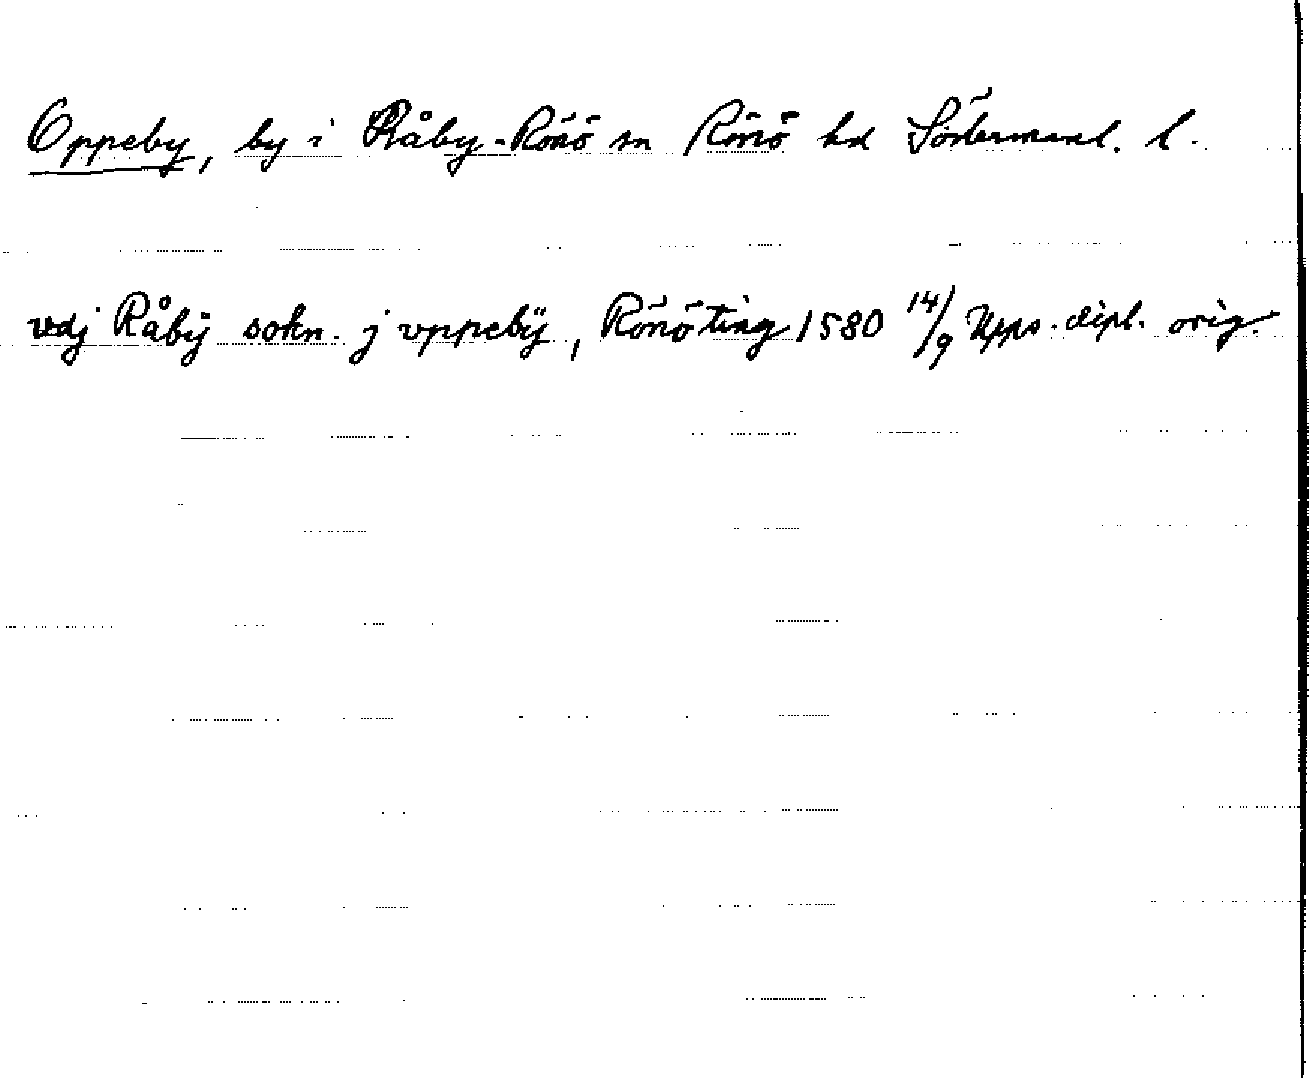 Oppeby, by i Råby-Rönö sn Rönö hd Södermanl. l.
vdj Råbÿ sokn. j vppebÿ, Rönö ting 1580 14/9 Upps. dipl. orig.